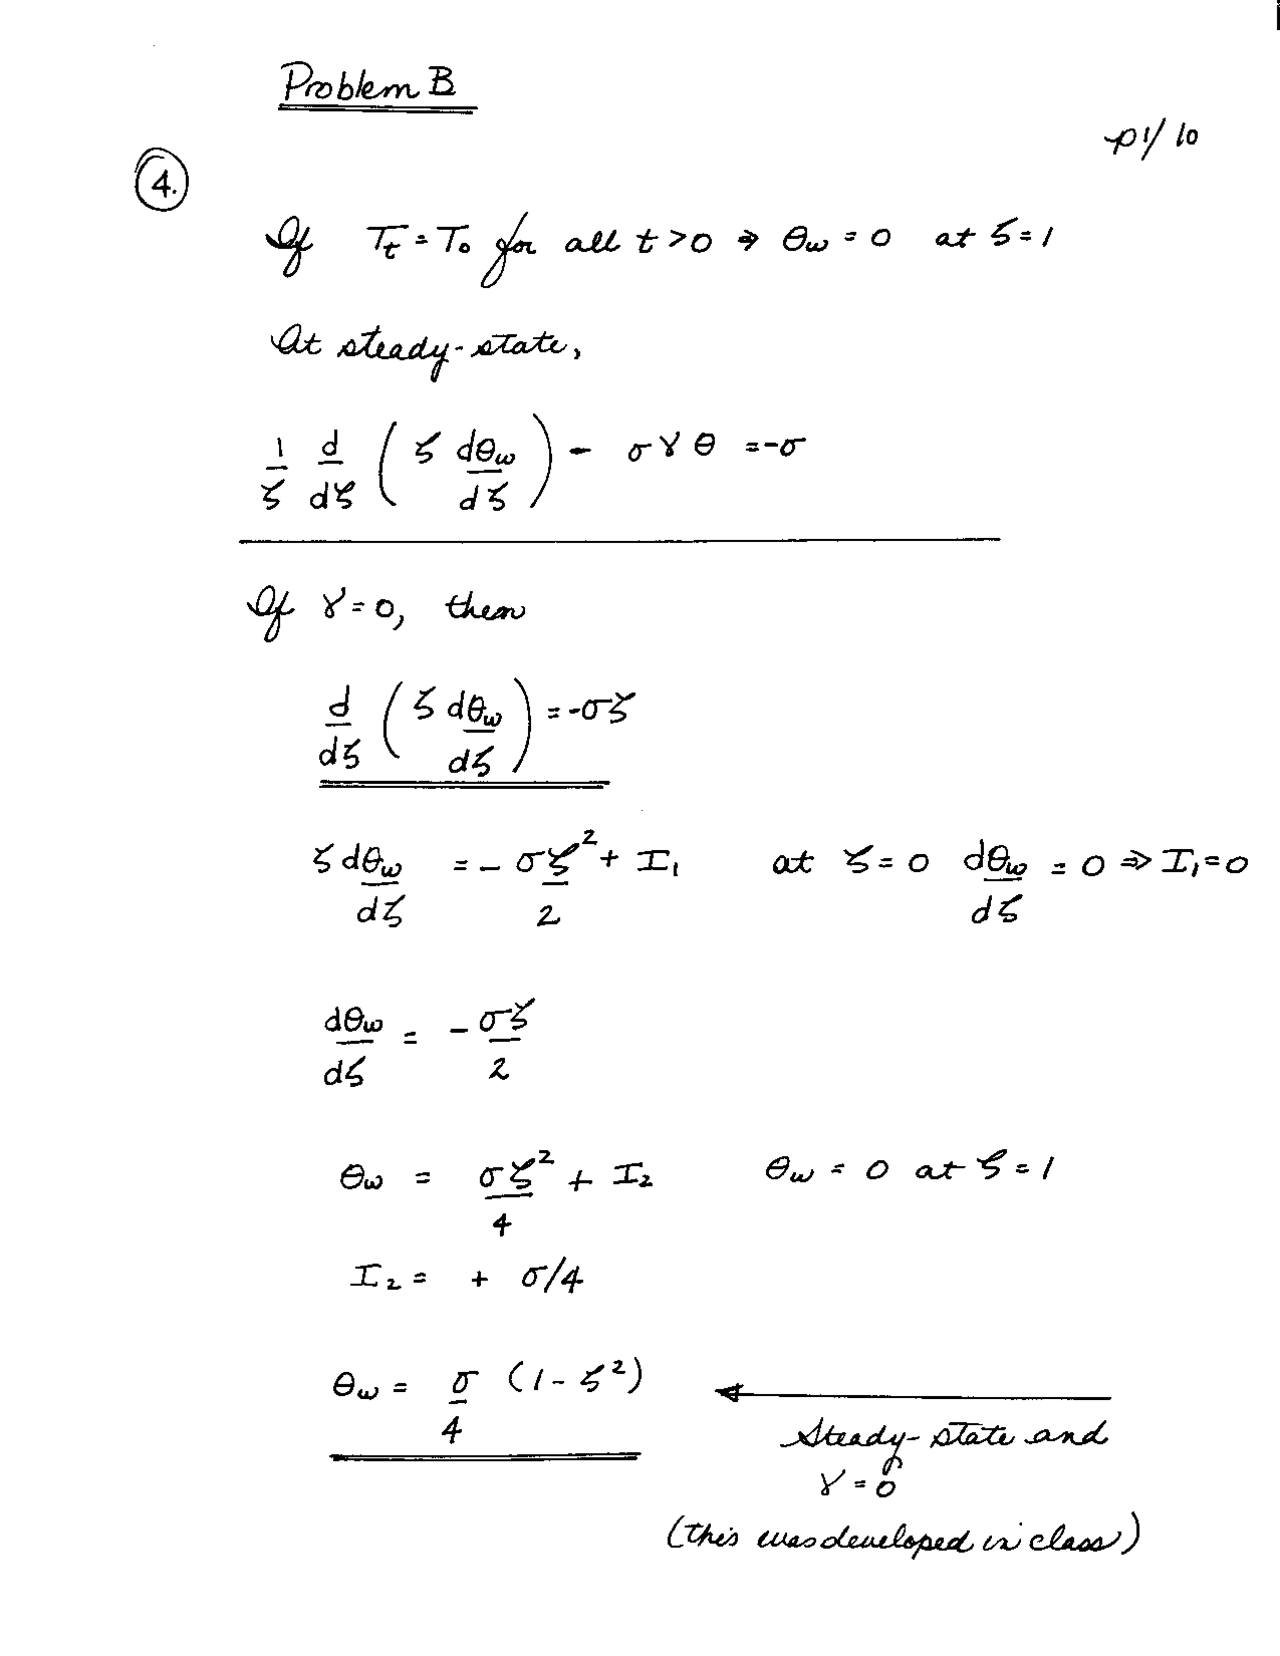 Problem B
p1/10
4.
If T_t = T_0 for all t > 0 ⇒ θ_w = 0 at ζ = 1
At steady-state,
1/ζ d/dζ ( ζ dθ_w/dζ ) - σγθ = -σ
If γ = 0, then
d/dζ ( ζ dθ_w/dζ ) = -σζ
ζ dθ_w/dζ = - σζ²/2 + I_1 at ζ = 0 dθ_w/dζ = 0 ⇒ I_1 = 0
dθ_w/dζ = - σζ/2
θ_w = σζ²/4 + I_2 θ_w = 0 at ζ = 1
I_2 = + σ/4
θ_w = σ/4 (1 - ζ²) ←
Steady-state and
γ = 0
(this was developed in class)